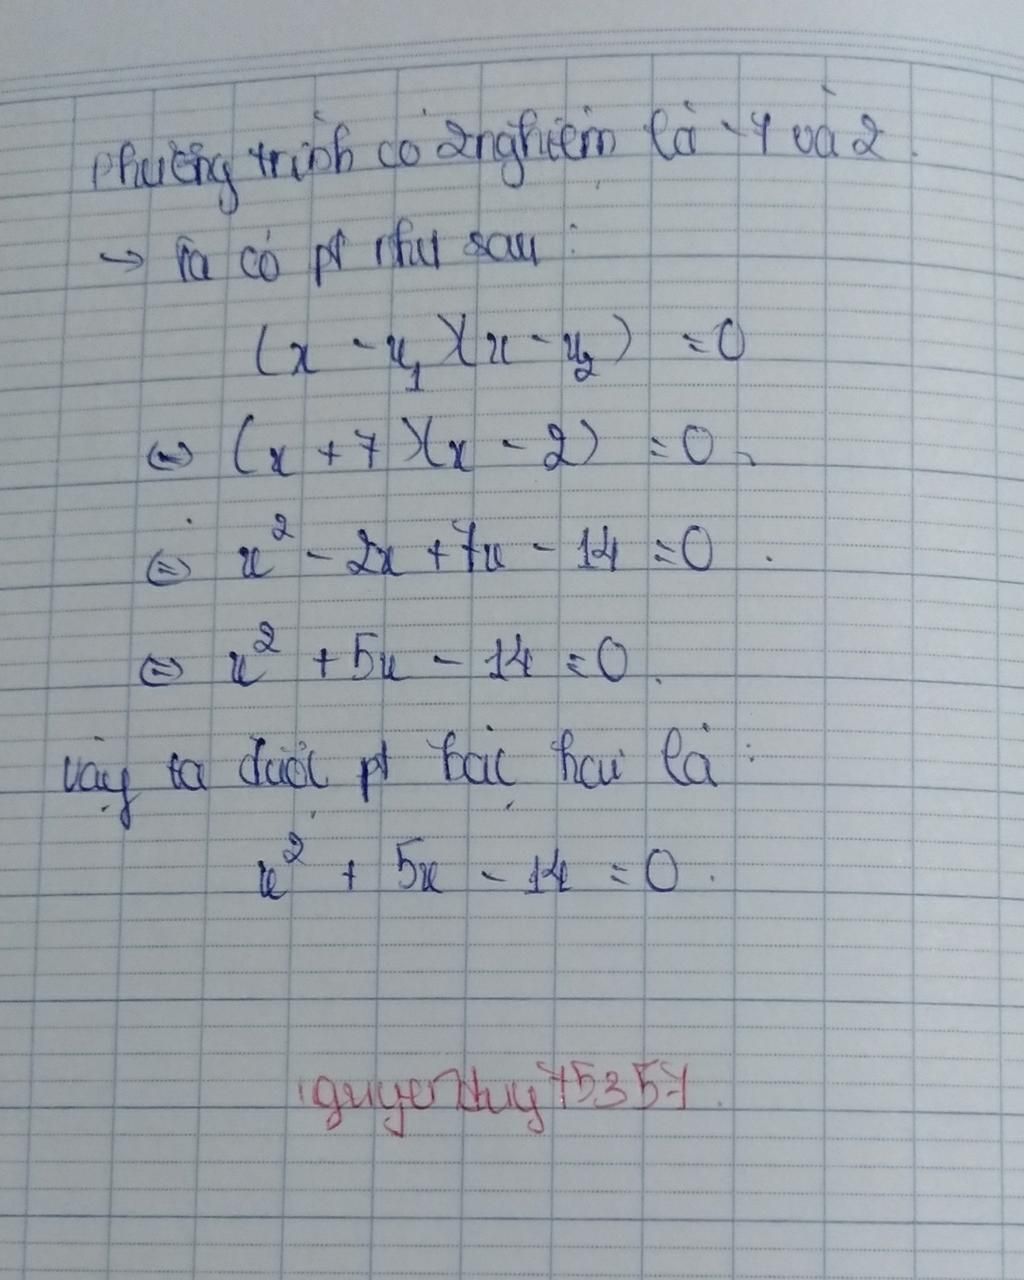 Phương trình có 2 nghiệm là -7 và 2.
→ Ta có pt như sau:
(x - x₁)(x - x₂) = 0
⇔ (x + 7)(x - 2) = 0.
⇔ x² - 2x + 7x - 14 = 0.
⇔ x² + 5x - 14 = 0.
Vậy ta được pt bậc hai là:
x² + 5x - 14 = 0.
nguyenduy75357.